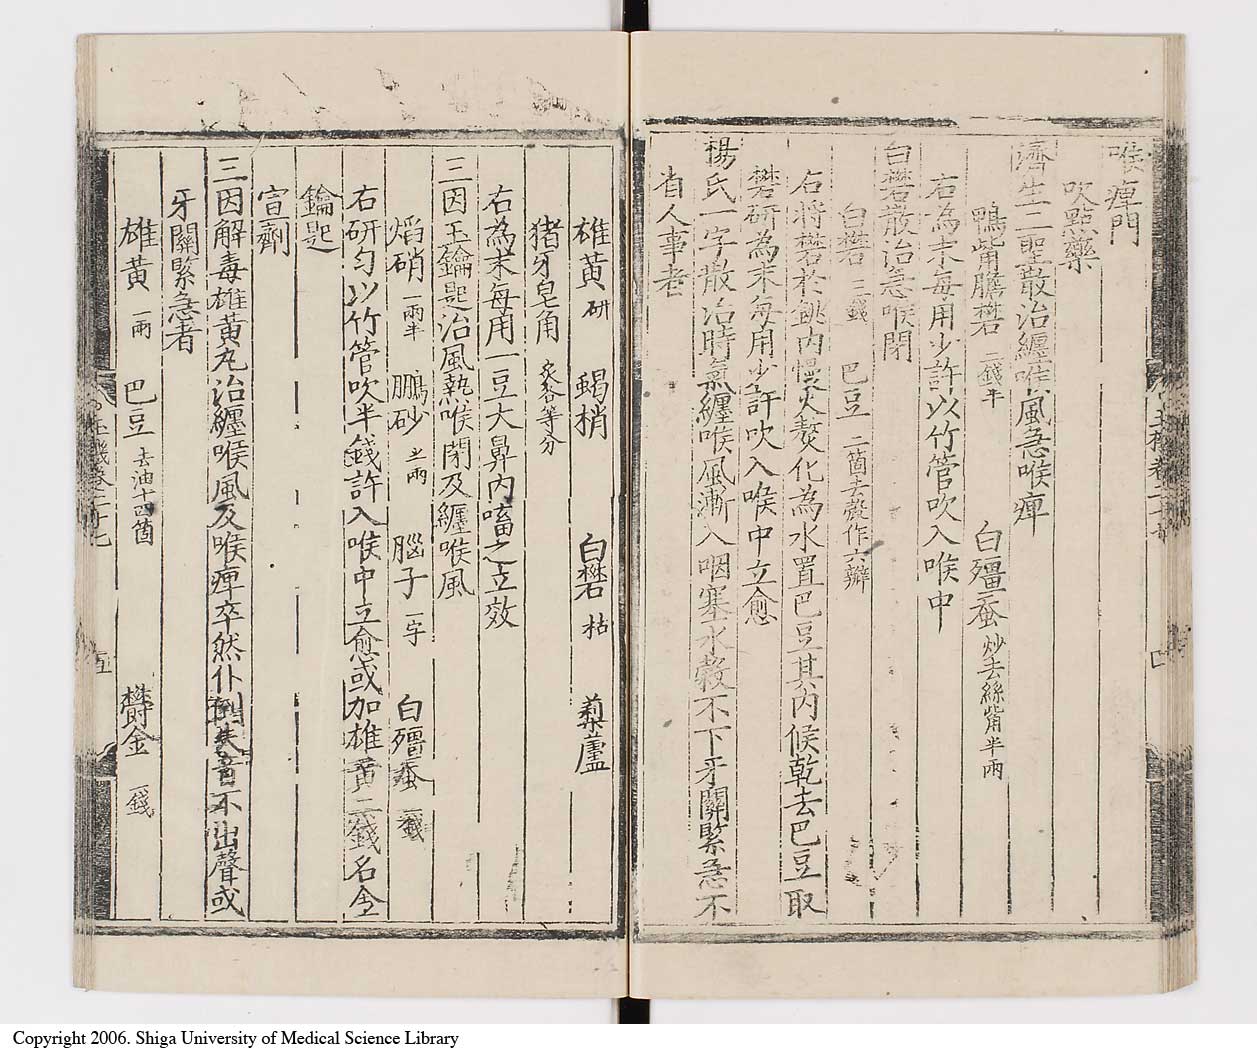 喉痺門
吹㸃藥
濟生二聖散治纏喉風急喉痺
鴨觜膽礬 二錢半 白殭蚕 炒去絲觜半兩
右為末每用少許以竹管吹入喉中
白礬散治急喉閉
白礬 三錢 巴豆 二箇去殼作六瓣
右將礬於銚內慢火熬化為水置巴豆其內候乾去巴豆取
礬研為末每用少許吹入喉中立愈
楊氏一字散治時氣纏喉風漸入咽塞水穀不下牙關緊急不
省人事者
雄黃 研 蝎梢 白礬 枯 藜蘆
猪牙皂角 炙各等分
右為末每用一豆大鼻內㗜之立效
三因玉鑰匙治風熱喉閉及纏喉風
焰硝 一兩半 鵬砂 半兩 腦子 一字 白殭蚕 一錢
右研勻以竹管吹半錢許入喉中立愈或加雄黃二錢名金
鑰匙
宣劑
三因解毒雄黃丸治纏喉風及喉痺卒然仆倒失音不出聲或
牙關緊急者
雄黃 一兩 巴豆 去油十四箇 欝金 一錢
玉機卷二十七
四
玉機卷二十七
五
Copyright 2006. Shiga University of Medical Science Library